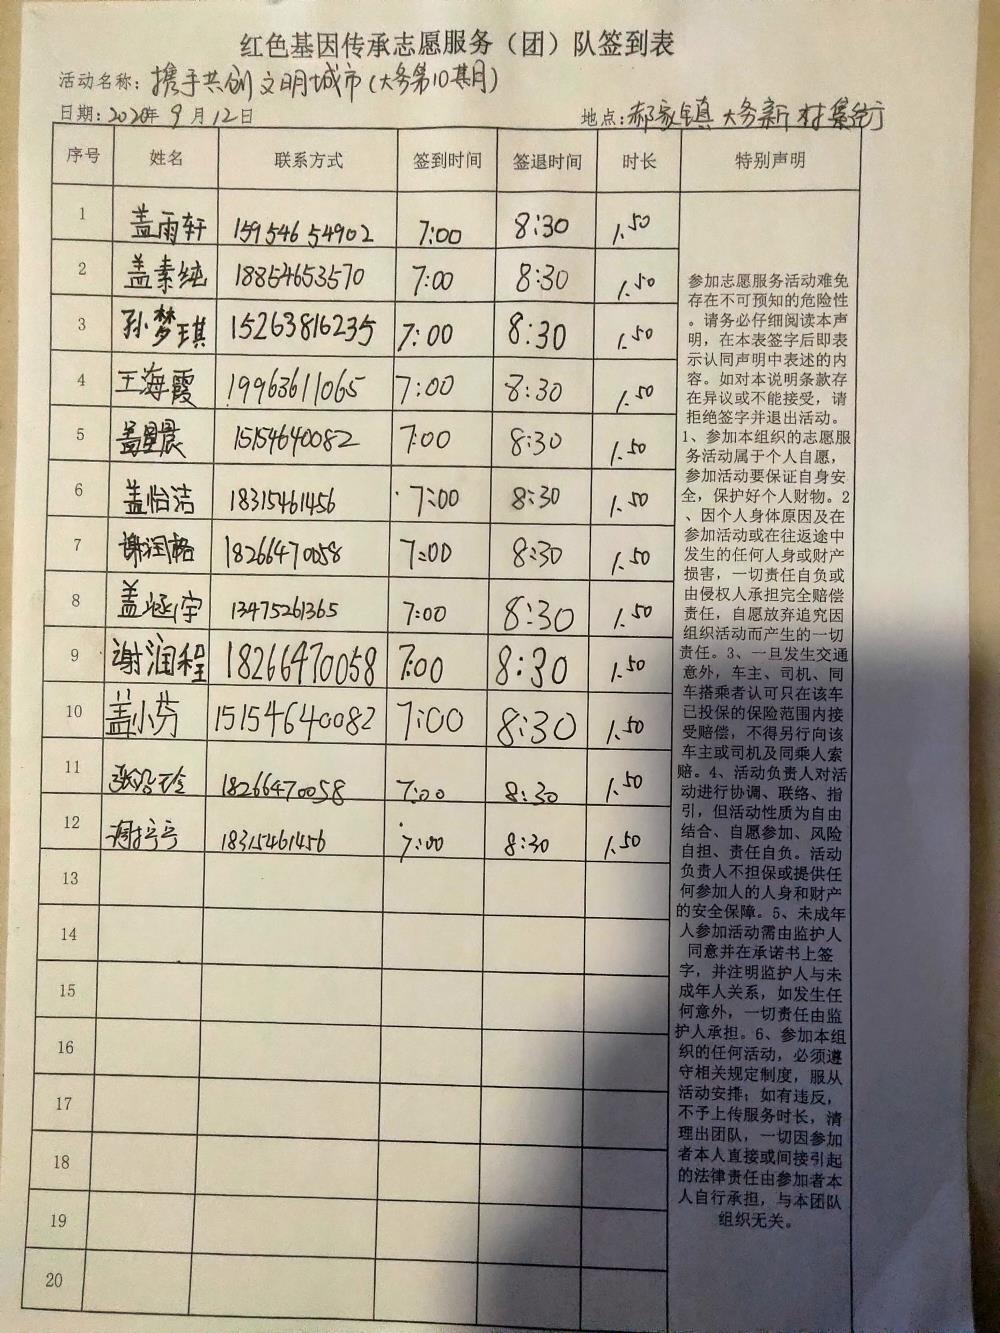 红色基因传承志愿服务（团）队签到表
活动名称：携手共创文明城市（大务第10期）
日期：2020年9月12日 地点：郝家镇大务新村集街
序号 姓名 联系方式 签到时间 签退时间 时长 特别声明
1 盖雨轩 15954654902 7:00 8:30 1.50
2 盖素纯 18854653570 7:00 8:30 1.50
3 孙梦琪 15263816235 7:00 8:30 1.50
4 王海霞 19963611065 7:00 8:30 1.50
5 盖星晨 15154640082 7:00 8:30 1.50
6 盖怡洁 18315461456 7:00 8:30 1.50
7 谢润格 18266470058 7:00 8:30 1.50
8 盖涵宇 13475261365 7:00 8:30 1.50
9 谢润程 18266470058 7:00 8:30 1.50
10 盖小芬 15154640082 7:00 8:30 1.50
11 18266470058 7:00 8:30 1.50
12 18315461456 7:00 8:30 1.50
13
14
15
16
17
18
19
20
参加志愿服务活动难免
存在不可预知的危险性
。请务必仔细阅读本声
明，在本表签字后即表
示认同声明中表述的内
容。如对本说明条款存
在异议或不能接受，请
拒绝签字并退出活动。
1、参加本组织的志愿服
务活动属于个人自愿，
参加活动要保证自身安
全，保护好个人财物。2
、因个人身体原因及在
参加活动或在往返途中
发生的任何人身或财产
损害，一切责任自负或
由侵权人承担完全赔偿
责任，自愿放弃追究因
组织活动而产生的一切
责任。3、一旦发生交通
意外，车主、司机、同
车搭乘者认可只在该车
已投保的保险范围内接
受赔偿，不得另行向该
车主或司机及同乘人索
赔。4、活动负责人对活
动进行协调、联络、指
引，但活动性质为自由
结合、自愿参加、风险
自担、责任自负。活动
负责人不担保或提供任
何参加人的人身和财产
的安全保障。5、未成年
人参加活动需由监护人
同意并在承诺书上签
字，并注明监护人与未
成年人关系，如发生任
何意外，一切责任由监
护人承担。6、参加本组
织的任何活动，必须遵
守相关规定制度，服从
活动安排；如有违反，
不予上传服务时长，清
理出团队，一切因参加
者本人直接或间接引起
的法律责任由参加者本
人自行承担，与本团队
组织无关。